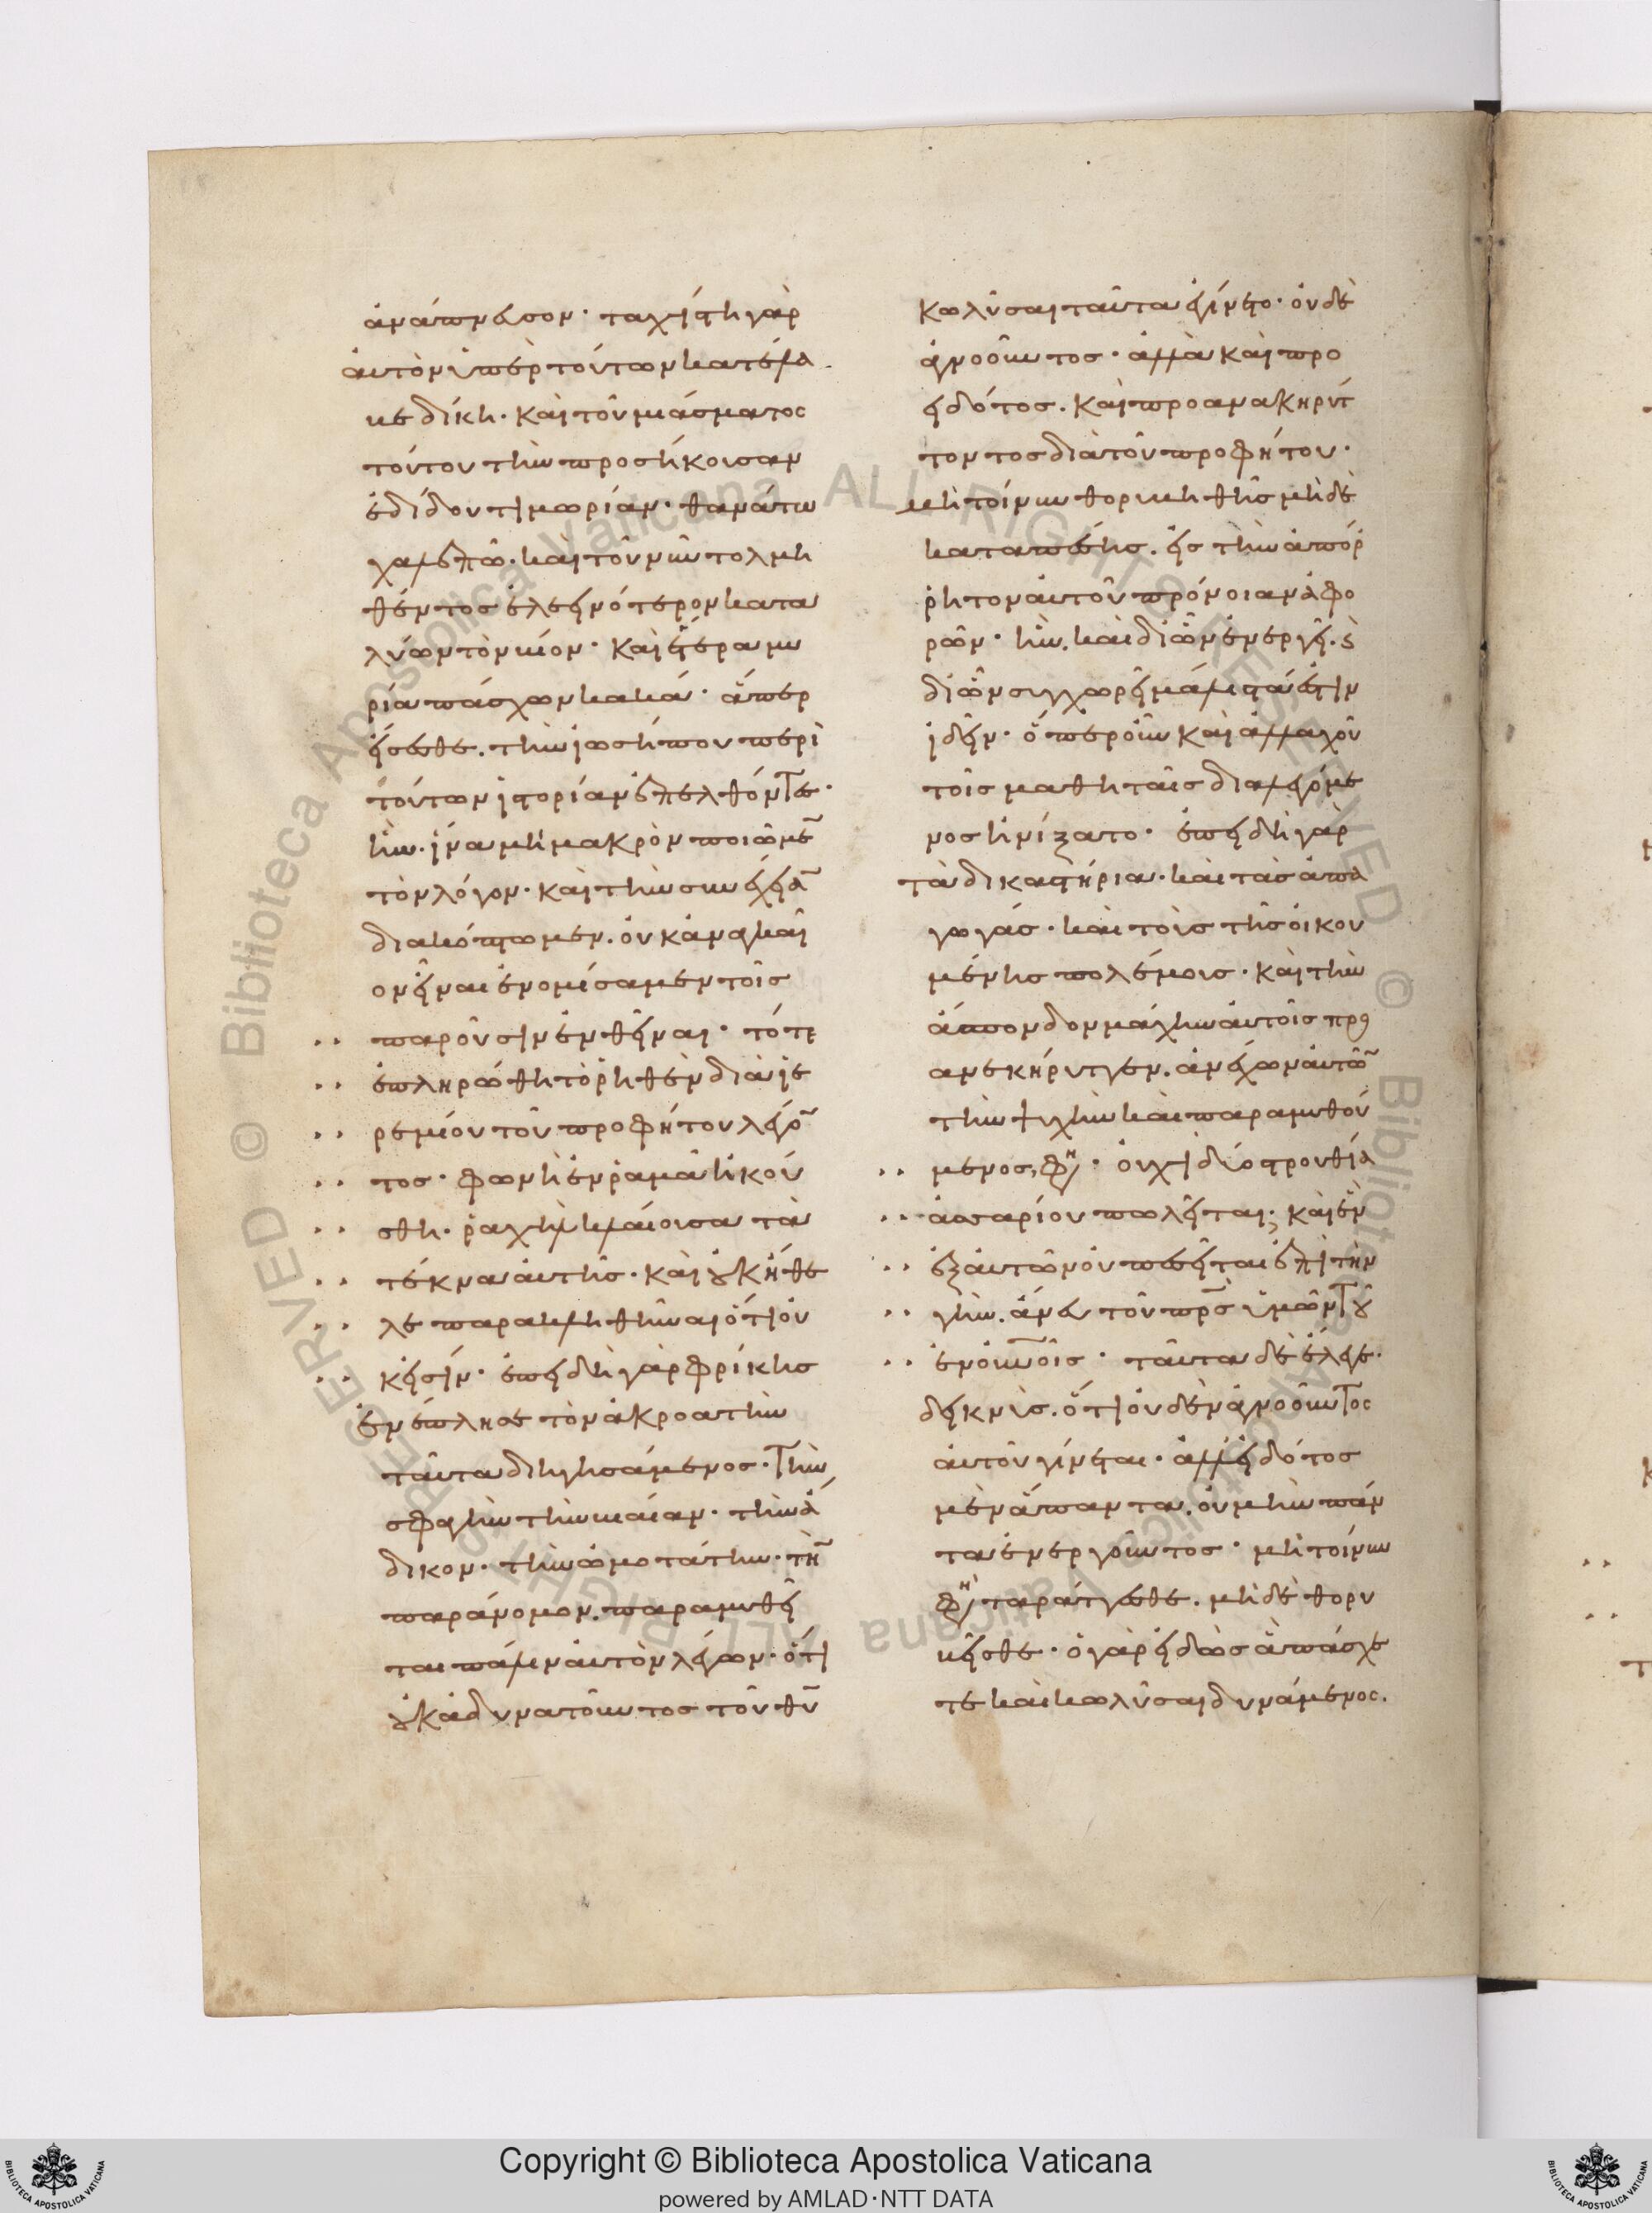 ἀνάπνευσον· ταχίστη γὰρ
αὐτὸν ὑπὲρ τούτων κατέλα
βε δίκη. καὶ τοῦ μιάσματος
τούτου τὴν προσήκουσαν
ἐδίδου τιμωρίαν. θανάτω
χαλεπῶ. καὶ τοῦ νῦν τολμη
θέντος ἐλεεινότερον κατα
λύων τὸν βίον. καὶ ἕτερα μυ
ρία πάσχων κακά. ἅπερ
εἴσεσθε. τὴν ἰωσήπου περὶ
τούτων ἱστορίαν ἐπελθόντες·
ἣν. ἵνα μὴ μακρὸν ποιῶμε̅
τὸν λόγον. καὶ τὴν συνέχεια̅
διακόπτωμεν. οὐκ ἀναγκαῖ
ον εἶναι ἐνομίσαμεν τοῖς
παροῦσιν ἐνθεῖναι· τότε
ἐπληρώθη τὸ ῥηθὲν διὰ ἱε
ρεμίου τοῦ προφήτου λέγο̅
τος· φωνὴ ἐν ῥαμᾶ ἠκού
σθη. ῥαχὴλ κλαίουσα τὰ
τέκνα αὐτῆς. καὶ οὐκ ἤθε
λε παρακληθῆναι ὅτι οὐ
κ εἰσίν· ἐπειδὴ γὰρ φρίκης
ἐνέπλησε τὸν ἀκροατὴν
ταῦτα διηγησάμενος. τὴν
σφαγὴν τὴν βιαίαν. τὴν ἄ
δικον. τὴν ὠμοτάτην. τὴ̅
παράνομον. παραμυθεῖ
ται πάλιν αὐτὸν λέγων. ὅτι
οὐκ ἀδυνατοῦντος τοῦ θυ̅
κωλῦσαι ταῦτα ἐγίνετο. οὐδὲ
ἀγνοοῦντος. ἀλλὰ καὶ προ
ειδότος. καὶ προανακηρύτ
τοντος διὰ τοῦ προφήτου.
μὴ τοίνυν θορυβηθῆς μηδὲ
καταπέσης. εἰς τὴν ἀπόρ
ρητον αὐτοῦ πρόνοιαν ἀφο
ρῶν. ἣν. καὶ δι' ὧν ἐνεργεῖ. κ̀
δι' ὧν συγχωρεῖ μάλιστα ἔστιν
ἰδεῖν. ὅπερ οὖν καὶ ἀλλαχοῦ
τοῖς μαθηταῖς διαλεγόμε
νος ἠνίξατο. ἐπειδὴ γὰρ
τὰ δικαστήρια. καὶ τὰς ἀπα
γωγάς. καὶ τοὺς τῆς οἰκου
μένης πολέμους. καὶ τὴν
ἄσπονδον μάχην αὐτοῖς προ
ανεκήρυττεν. ἀνέχων αὐτῶ̅
τὴν ψυχὴν καὶ παραμυθού
μενος, φη̅· οὐχὶ δύο στρουθία
ἀσσαρίου πωλεῖται; καὶ ἓν
ἐξ αὐτῶν οὐ πεσεῖται ἐπὶ τὴν
γῆν. ἄνευ τοῦ πρ̅ς ὑμῶν τοῦ
ἐν οὐ̅οῖς· ταῦτα δὲ ἔλεγε.
δεικνὺς. ὅτι οὐδὲν ἀγνοοῦντος
αὐτοῦ γίνεται. ἀλλ' εἰδότος
μὲν ἅπαντα. οὐ μὴν πάν
τα ἐνεργοῦντος· μὴ τοίνυν
φη̅ ταράττεσθε. μηδὲ θορυ
βεῖσθε. ὁ γὰρ εἰδὼς ἃ πάσχε
τε καὶ κωλῦσαι δυνάμενος.
Copyright © Biblioteca Apostolica Vaticana
powered by AMLAD·NTT DATA